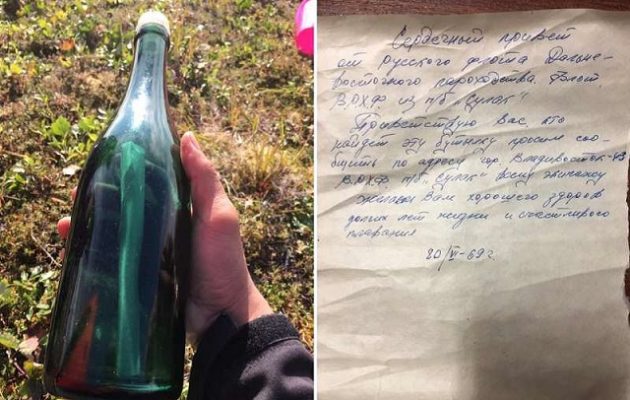 Сердечный привет
от русского флота Дальне-
восточного пароходства. Флот
В.Р.Х.Ф. из п/б „Сулак"
Приветствую Вас, кто
найдет эту бутылку просим соо-
бщить по адресу гор. Владивосток-43
В.Р.Х.Ф. п/б „Сулак" всему экипажу
Желаем Вам хорошего здоров
долгих лет жизни и счастливого
плавания
20/VI-69 г.